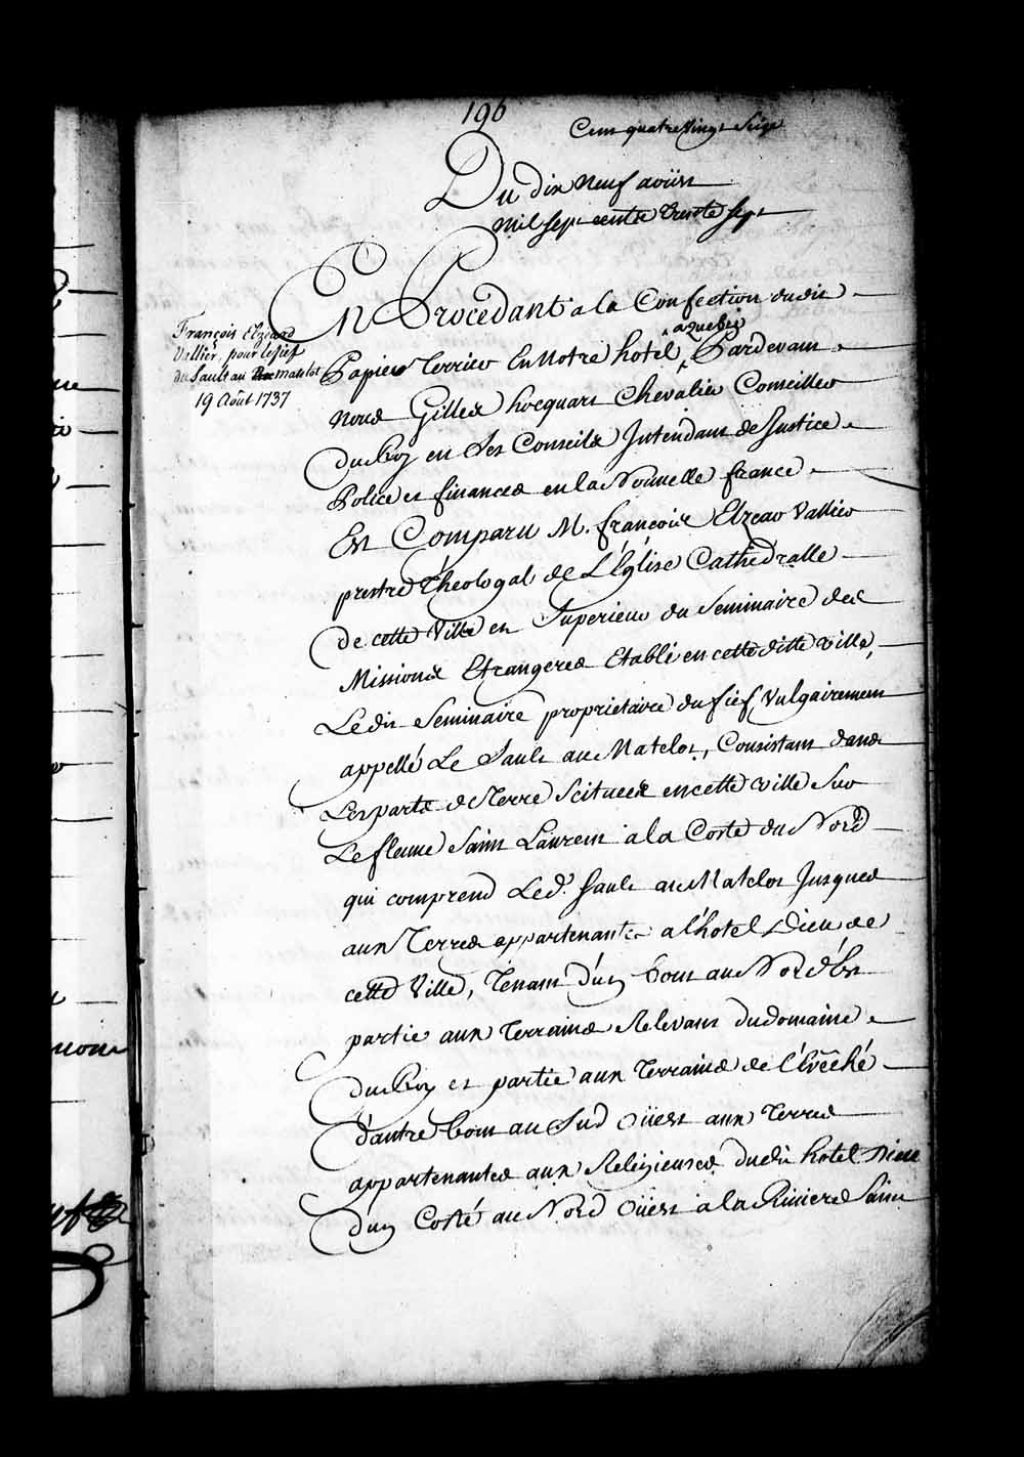 196
Cent quatre Vingt Seize
Du dix Neuf aoüst
Mil Sept cents Trente Sept
François Elzeard
Vallier, pour le fief
du Sault au Matelot
19 Août 1737
En Procedant a la Confection dudit
Papier Terrier En Notre hotel, a Quebec Pardevant
Nous Gilles hocquart Chevalier Conseiller
du Roy en Ses Conseils Intendant de Justice
Police et finances en la Nouvelle france
Est Comparu M. François Elzear Vallier
prestre Theologal de L'Église Cathedralle
de cette Ville et Superieur du Seminaire des
Missions Etrangeres Etabli en cette ditte ville,
Ledit Seminaire proprietaire du fief Vulgairement
appellé Le Sault au Matelot, Consistant dans
Les parts de Terre Scitueés en cette ville Sur
Le fleuve Saint Laurent a la Coste du Nord
qui comprend Led. Sault au Matelot Jusques
aux Terres appartenantes a l'hotel Dieu de
cette Ville, Tenant d'un bout au Nord Est
partie aux Terrains Relevant du domaine
du Roy et partie aux Terrains de l'Evêché
d'autre bout au Sud Oüest aux Terres
appartenantes aux Religieuses dudit hotel Dieu
d'un Costé au Nord Oüest a la Riviere Saint